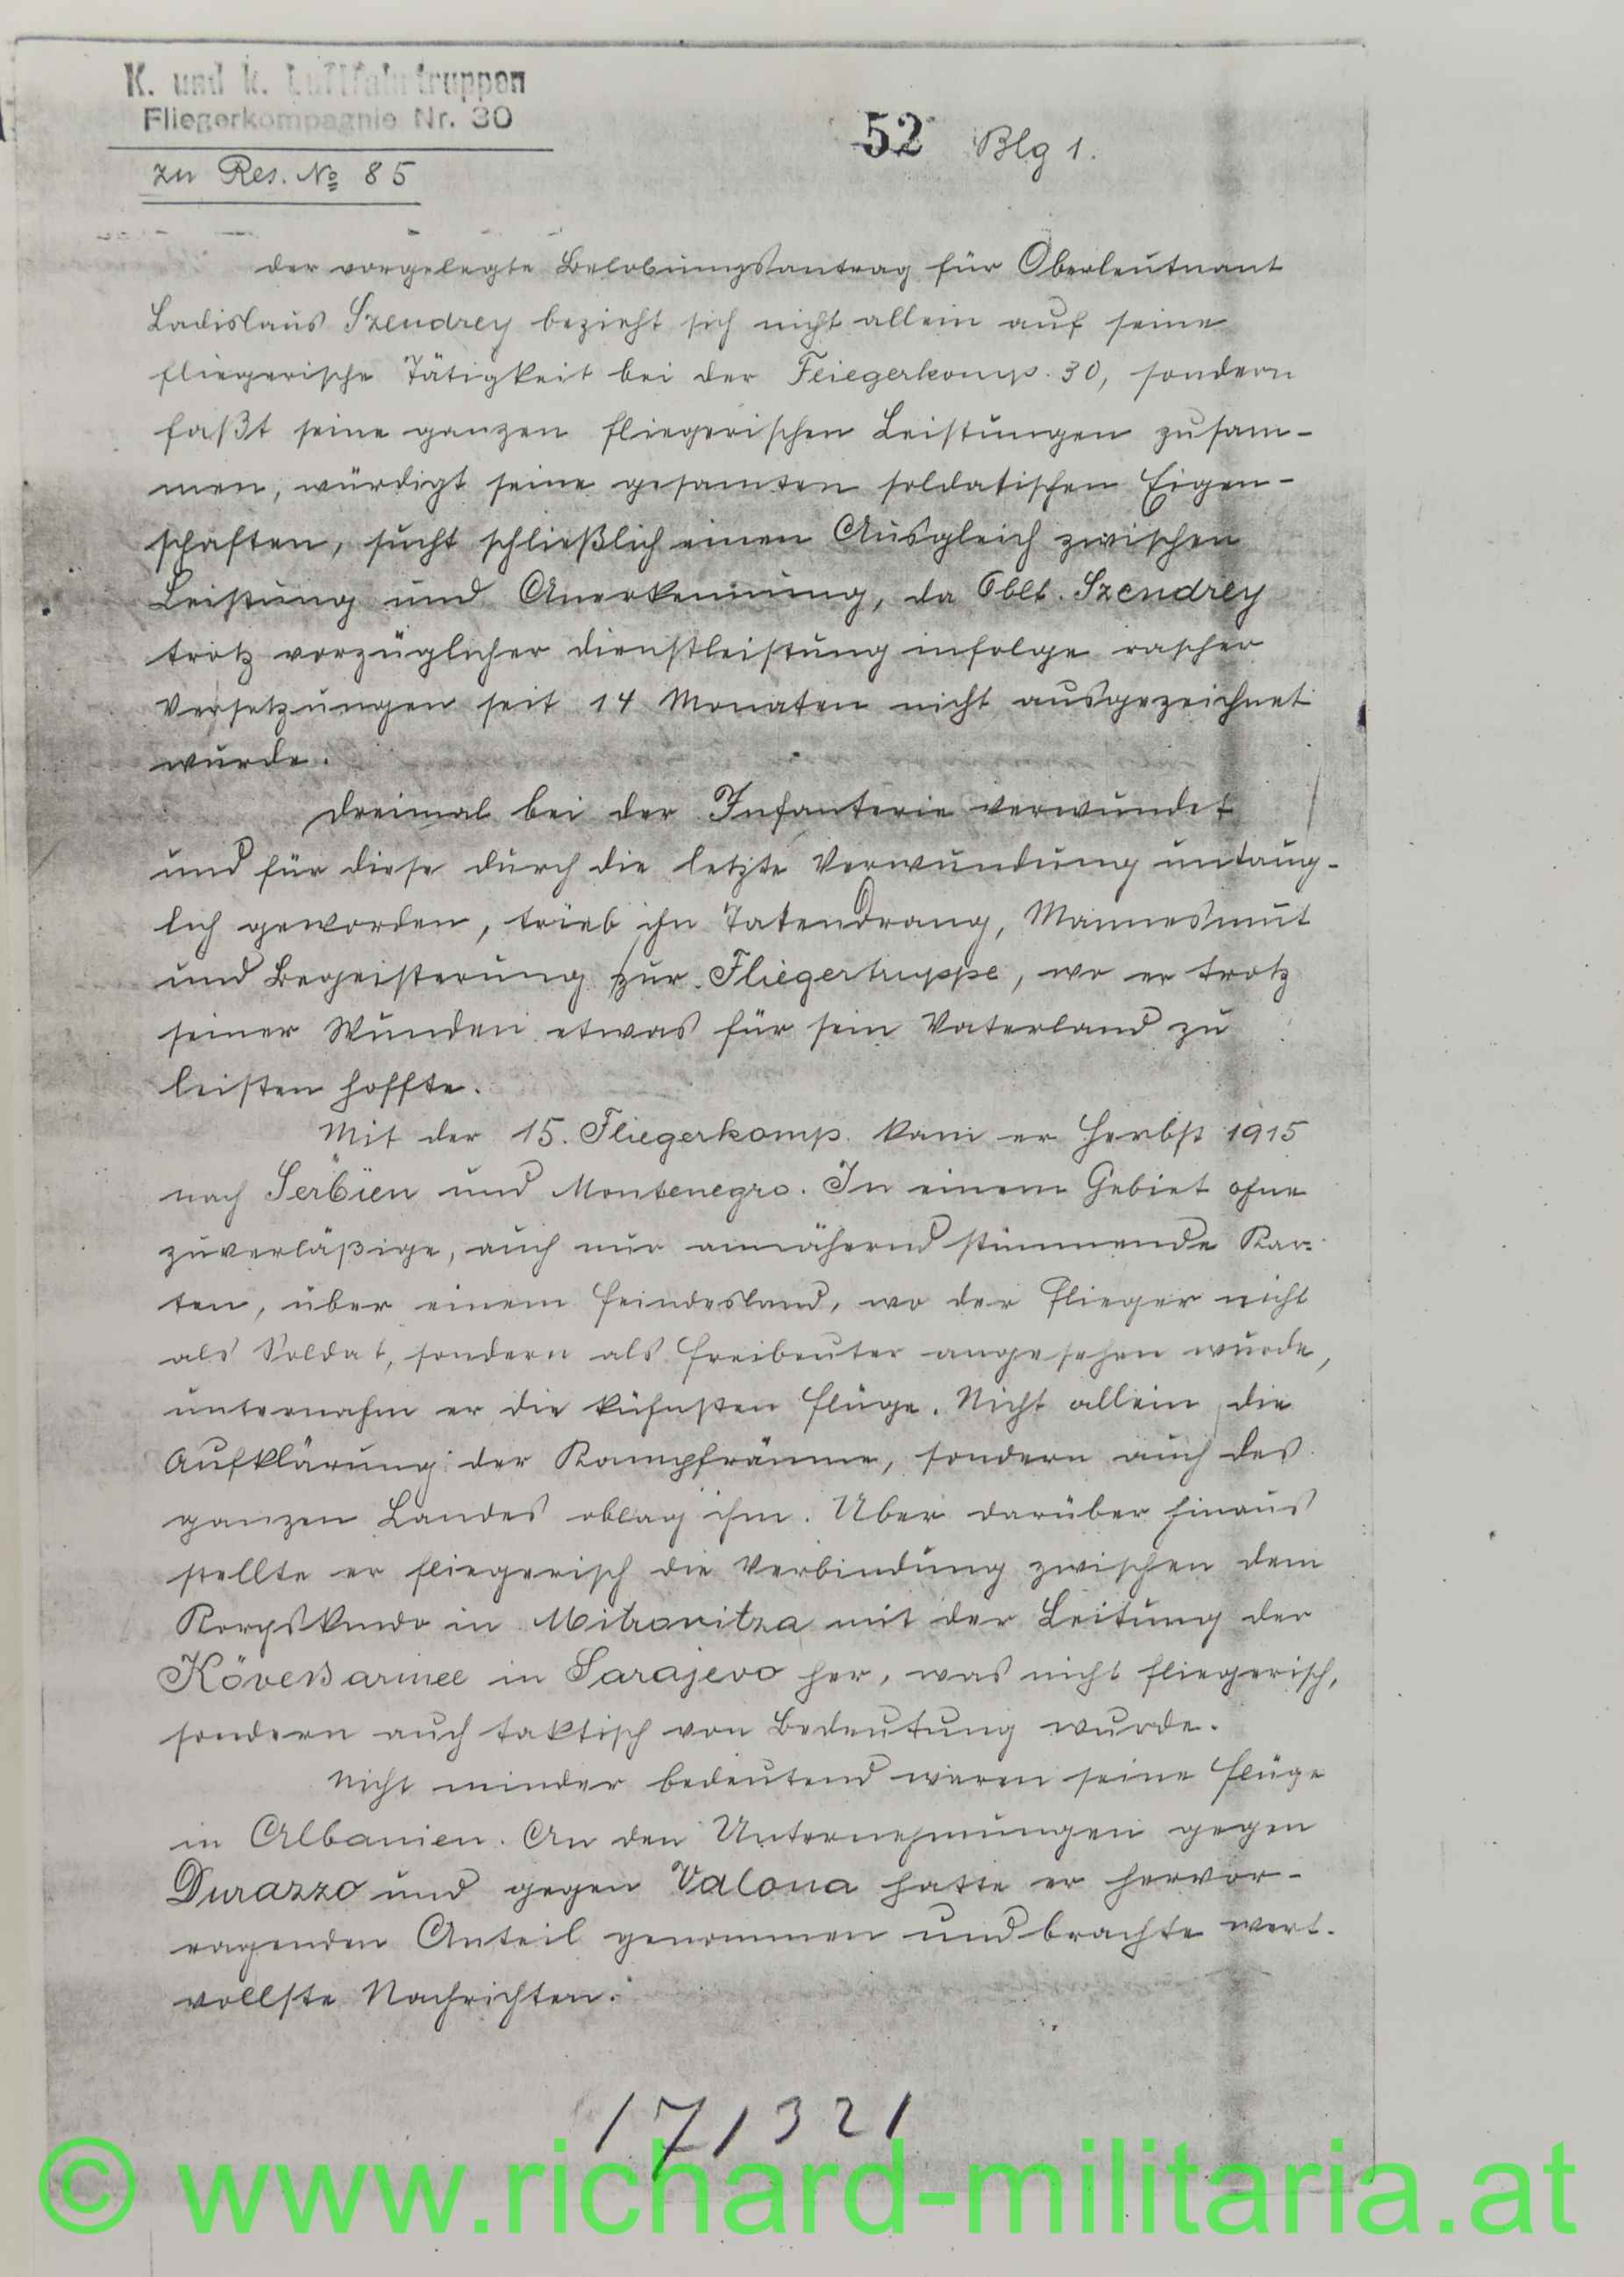 K. und k. Luftfahrtruppen
Fliegerkompagnie Nr. 30
52 Blg 1.
zu Res. № 85
der vorgelegte Belobungsantrag für Oberleutnant
Ladislaus Szendrey bezieht sich nicht allein auf seine
fliegerische Tätigkeit bei der Fliegerkomp. 30, sondern
faßt seine ganzen fliegerischen Leistungen zusam-
men, würdigt seine gesamten soldatischen Eigen-
schaften, sucht schließlich einen Ausgleich zwischen
Leistung und Anerkennung, da Oblt. Szendrey
trotz vorzüglicher Dienstleistung infolge rascher
Versetzungen seit 14 Monaten nicht ausgezeichnet
wurde.
Dreimal bei der Infanterie verwundet
und für diese durch die letzte Verwundung untaug-
lich geworden, trieb ihn Tatendrang, Mannesmut
und Begeisterung zur Fliegertruppe, wo er trotz
seiner Wunden etwas für sein Vaterland zu
leisten hoffte.
Mit der 15. Fliegerkomp. kam er Herbst 1915
nach Serbien und Montenegro. In einem Gebiet ohne
zuverläßige, auch nur annähernd stimmende Kar-
ten, über einem Feindesland, wo der Flieger nicht
als Soldat, sondern als Freibeuter angesehen wurde,
unternahm er die kühnsten Flüge. Nicht allein die
Aufklärung der Kampfräume, sondern auch des
ganzen Landes oblag ihm. Über darüber hinaus
stellte er fliegerisch die Verbindung zwischen dem
Korpskmdo in Mitrovitza mit der Leitung der
Köveßarmee in Sarajevo her, was nicht fliegerisch,
sondern auch taktisch von Bedeutung wurde.
Nicht minder bedeutend waren seine Flüge
in Albanien. An den Unternehmungen gegen
Durazzo und gegen Valona hatte er hervor-
ragenden Anteil genommen und brachte wert-
vollste Nachrichten.
171321
© www.richard-militaria.at